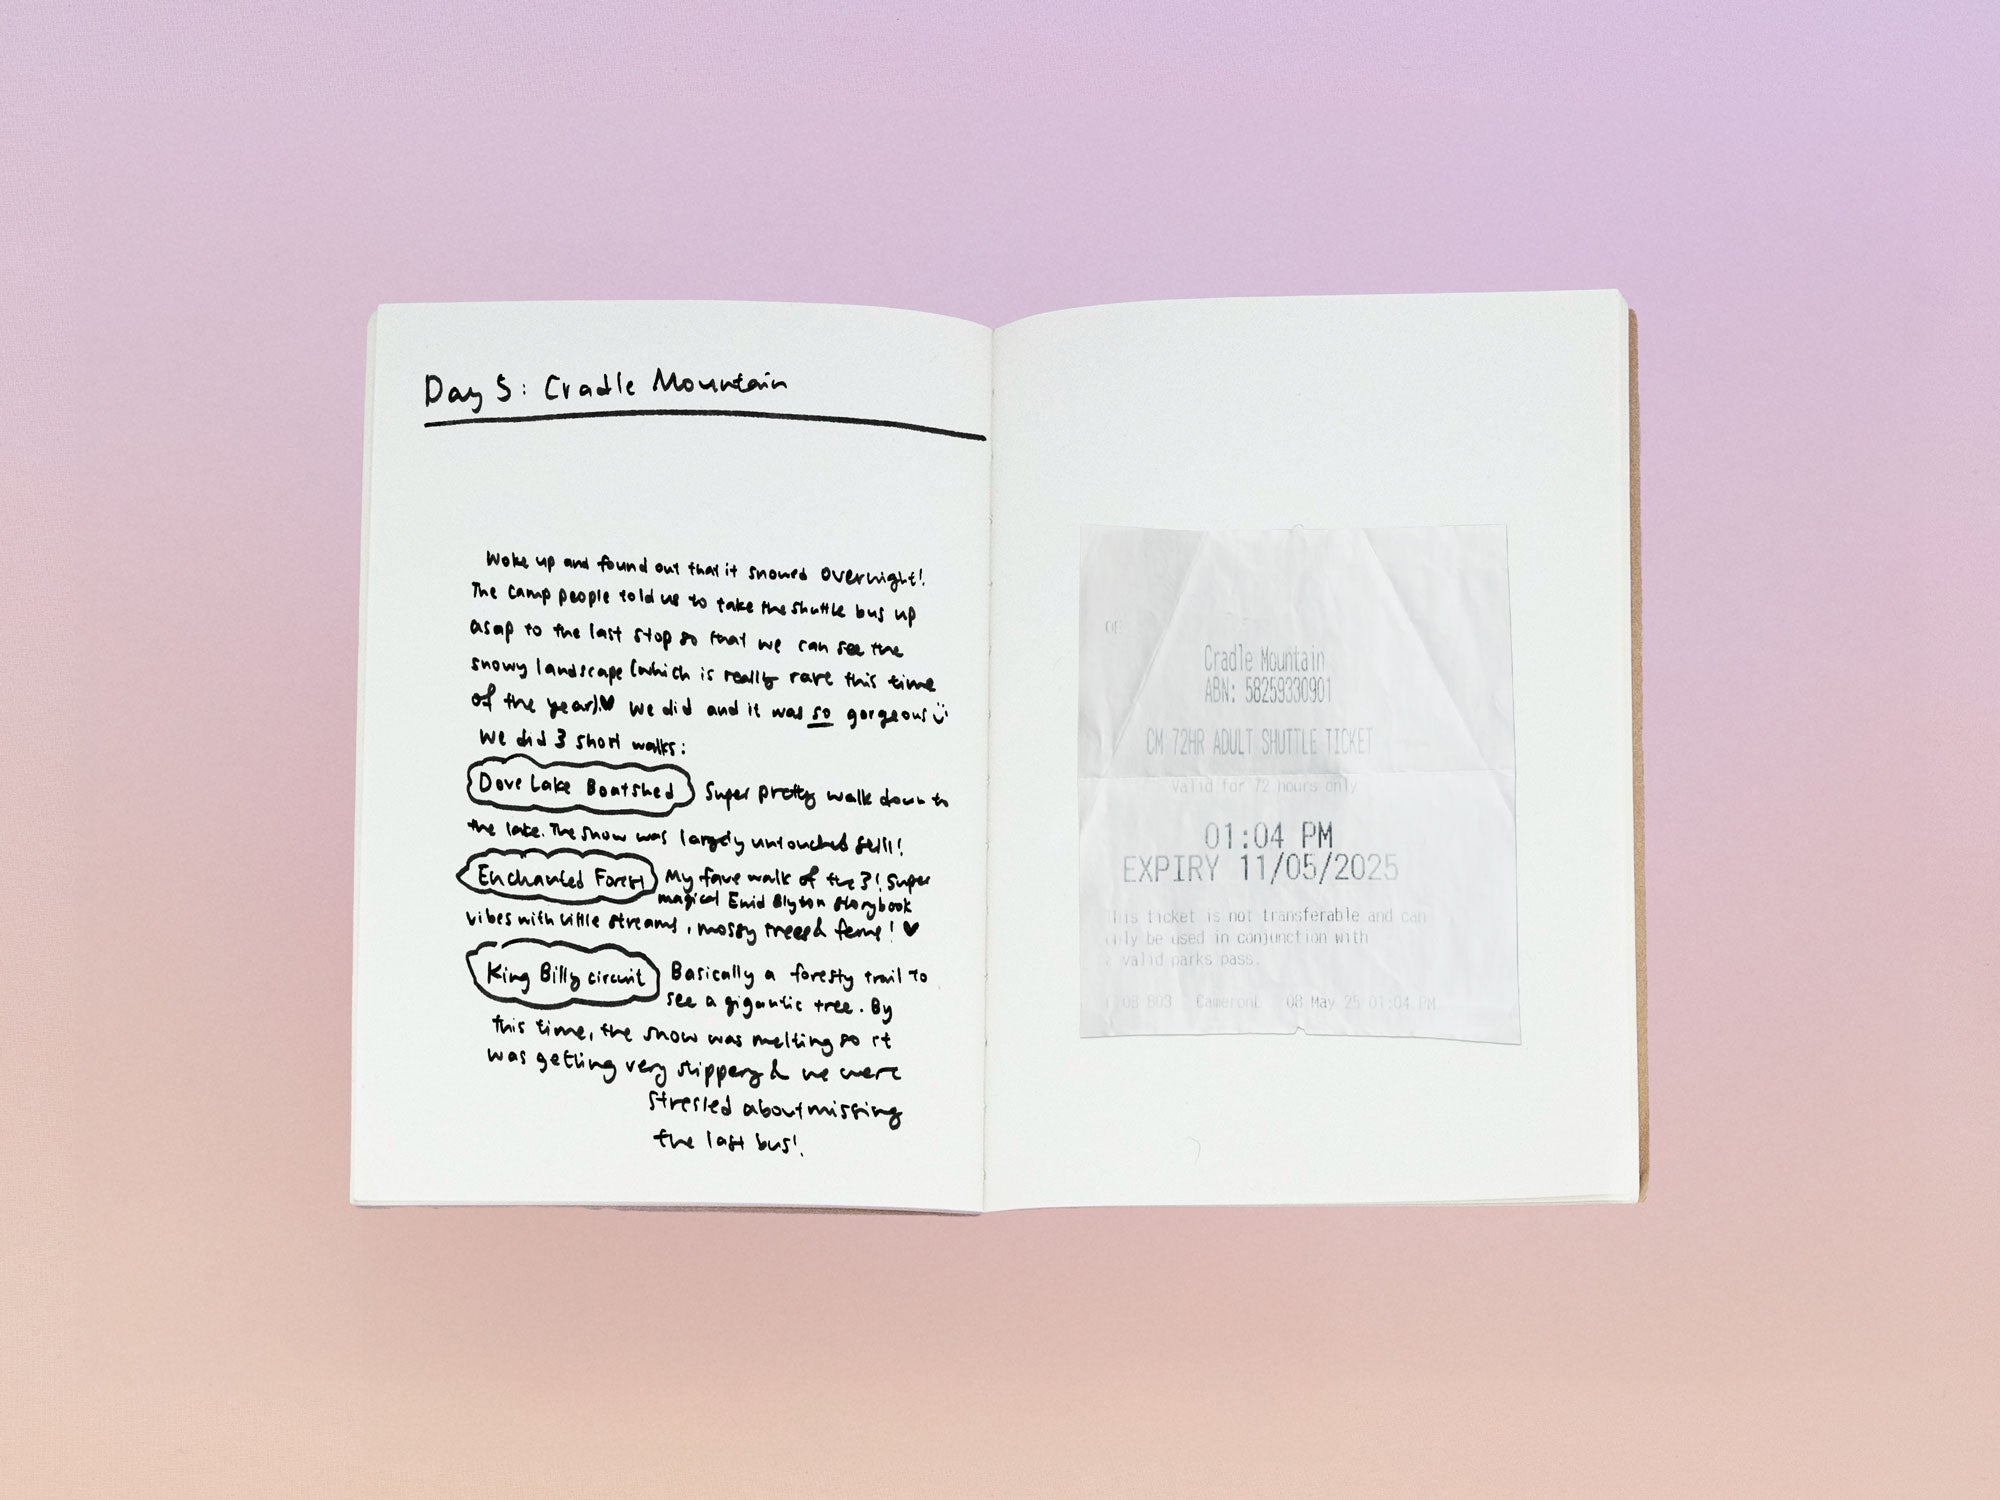 Day 5: Cradle Mountain
Woke up and found out that it snowed overnight!
The camp people told us to take the shuttle bus up
asap to the last stop so that we can see the
snowy landscape (which is really rare this time
of the year).♥ We did and it was so gorgeous
We did 3 short walks:
Dove Lake Boatshed Super pretty walk down to
the lake. The snow was largely untouched still!
Enchanted Forest My fave walk of the 3! Super
magical Enid Blyton storybook
vibes with little streams, mossy trees & ferns! ♥
King Billy circuit Basically a foresty trail to
see a gigantic tree. By
this time, the snow was melting so it
was getting very slippery & we were
stressed about missing
the last bus!
Cradle Mountain
ABN: 58259330901
CM 72HR ADULT SHUTTLE TICKET
Valid for 72 hours only
01:04 PM
EXPIRY 11/05/2025
This ticket is not transferable and can
only be used in conjunction with
a valid parks pass.
OB 803 CameronL 08 May 25 01:04 PM